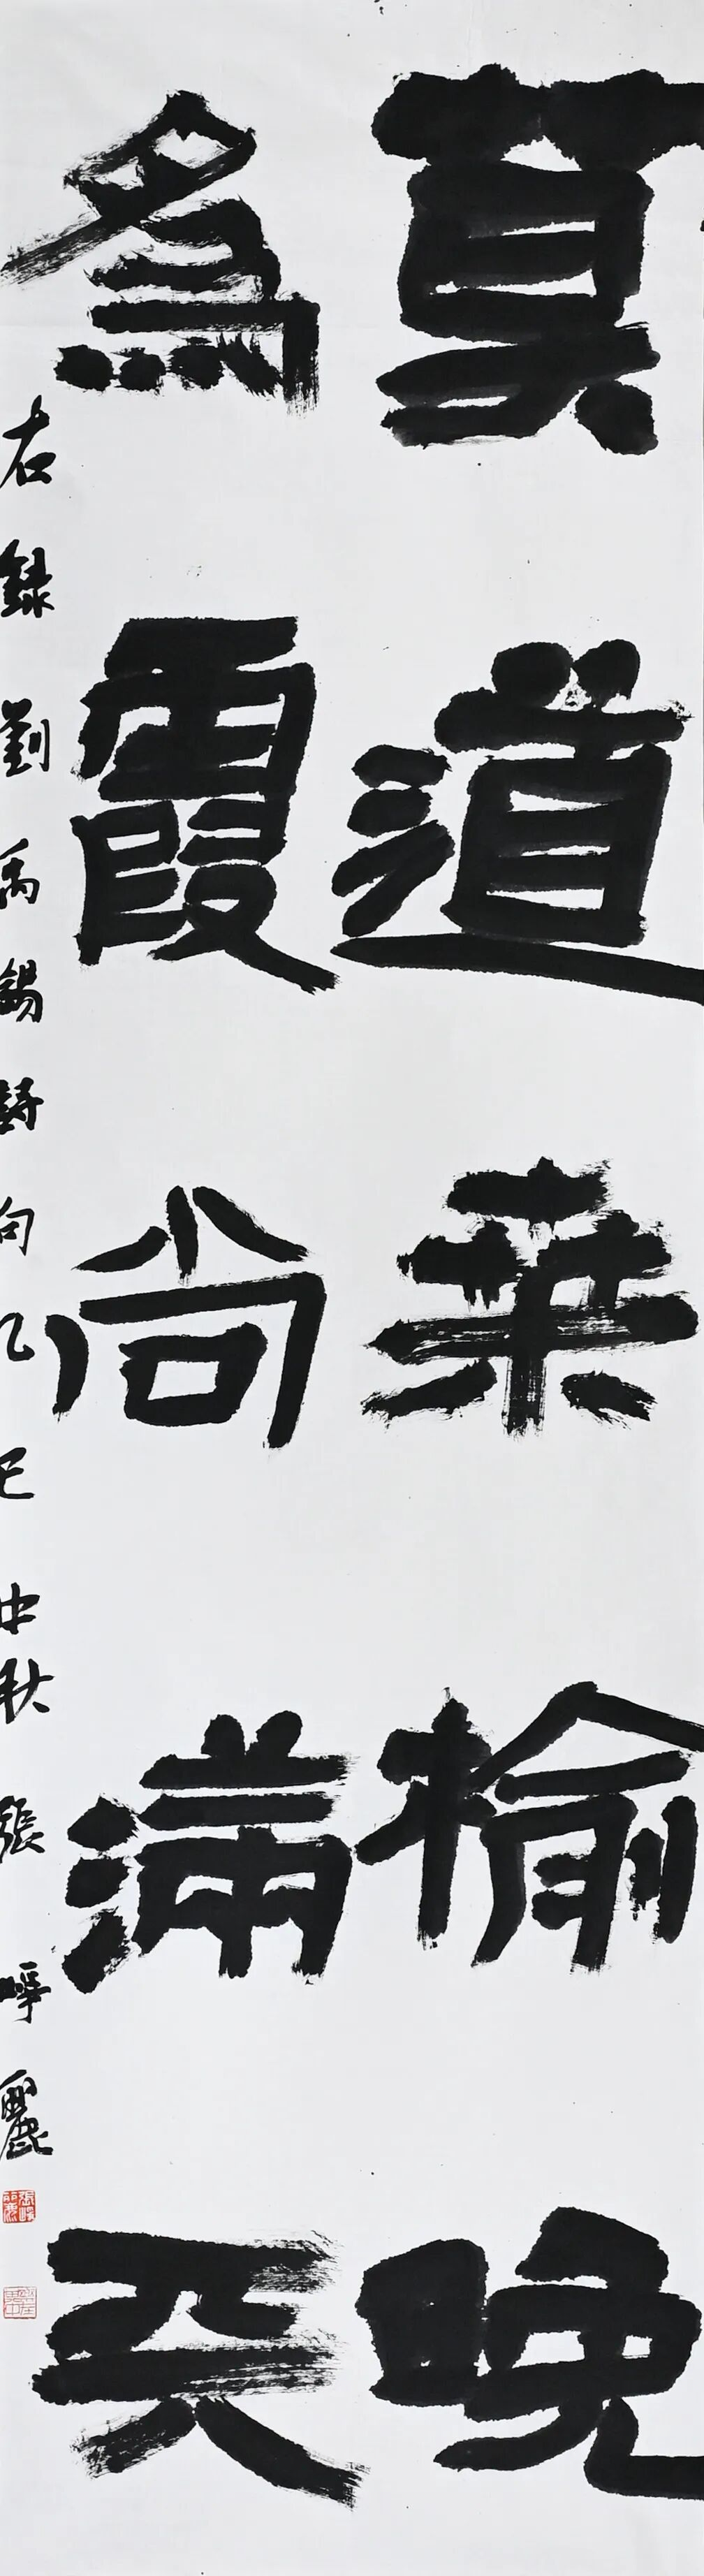 莫道桒榆晚
為霞尚满天
右録劉禹錫詩句乙巳中秋張崢麗